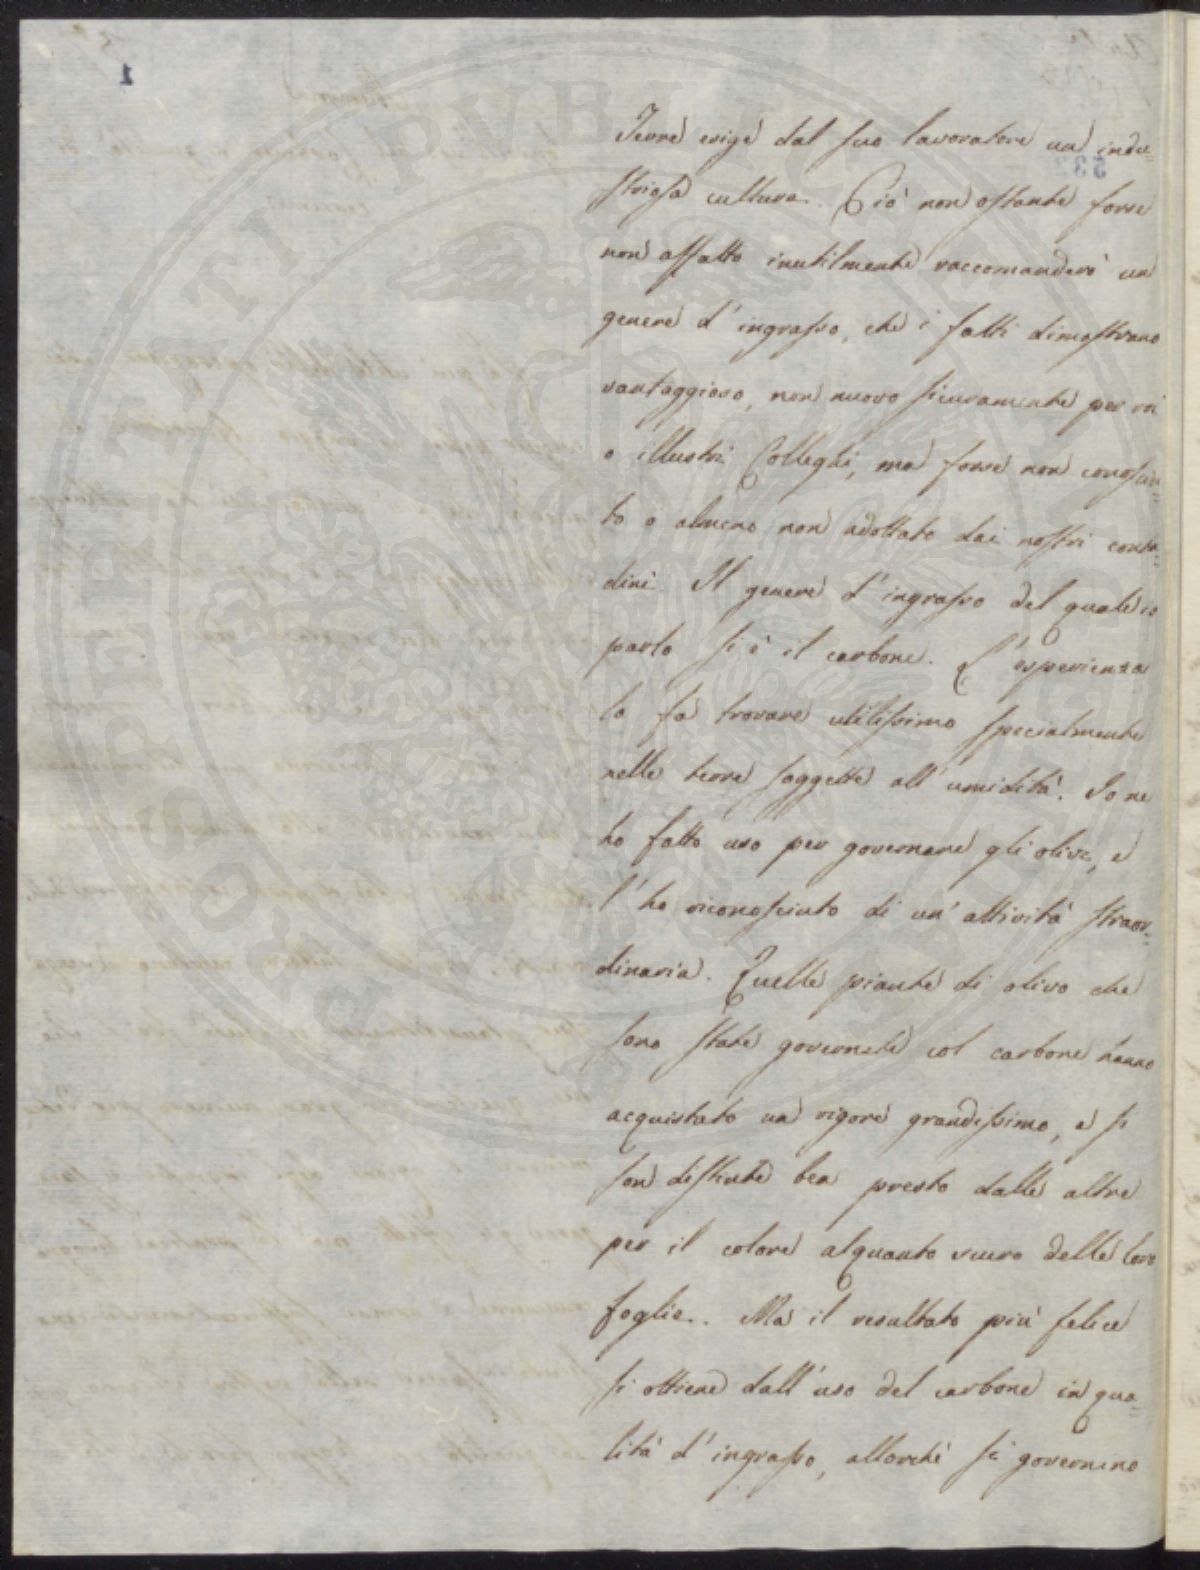 Terre esige dal suo lavoratore una indu=
striosa cultura. Ciò non ostante forse
non affatto inutilmente raccomanderò un
genere d'ingrasso, che i fatti dimostrano
vantaggioso, non nuovo sicuramente per voi
o illustri Colleghi, ma forse non conosciu=
to o almeno non adottato dai nostri conta=
dini. Il genere d'ingrasso del quale io
parlo si è il carbone. L'esperienza
lo fa trovare utilissimo specialmente
nelle terre soggette all'umidità. Io ne
ho fatto uso per governare gli olivi, e
l'ho riconosciuto di un'attività straor=
dinaria. Quelle piante di olivo che
sono state governate col carbone hanno
acquistato un vigore grandissimo, e si
son distinte ben presto dalle altre
per il colore alquanto scuro delle loro
foglie. Ma il resultato più felice
si ottiene dall'uso del carbone in qua=
lità d'ingrasso, allorchè si governino